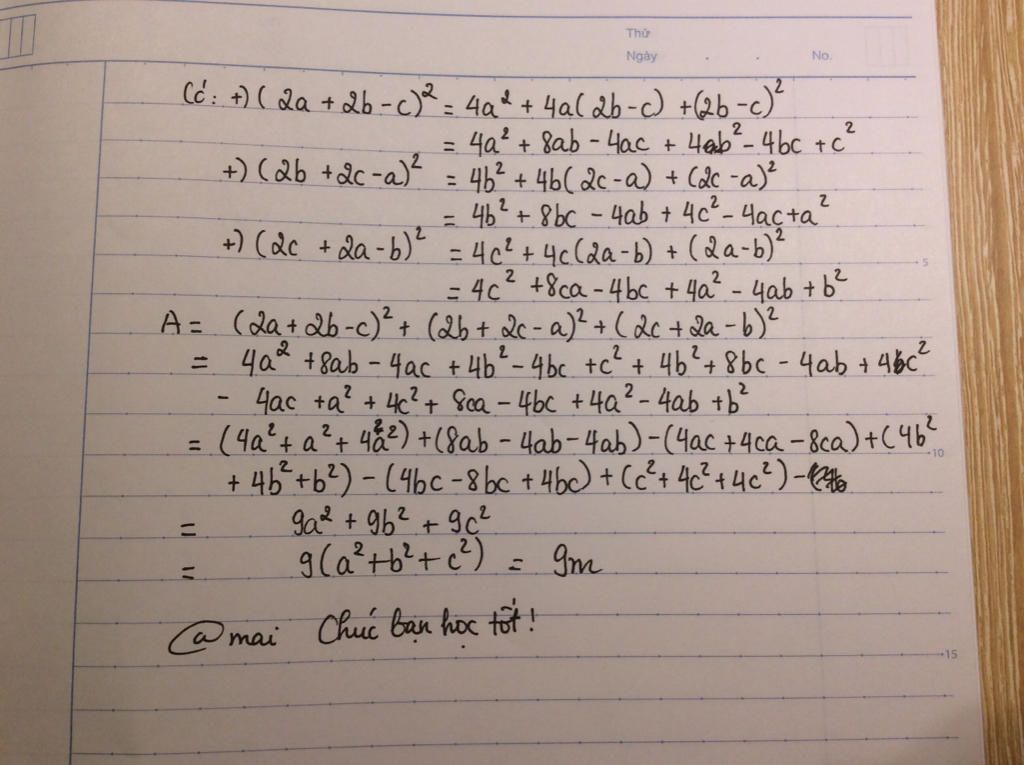 Thứ
Ngày . . No.
Có: +) (2a + 2b - c)² = 4a² + 4a(2b-c) + (2b-c)²
= 4a² + 8ab - 4ac + 4b² - 4bc + c²
+) (2b + 2c - a)² = 4b² + 4b(2c-a) + (2c-a)²
= 4b² + 8bc - 4ab + 4c² - 4ac + a²
+) (2c + 2a - b)² = 4c² + 4c(2a-b) + (2a-b)²
5
= 4c² + 8ca - 4bc + 4a² - 4ab + b²
A = (2a + 2b - c)² + (2b + 2c - a)² + (2c + 2a - b)²
= 4a² + 8ab - 4ac + 4b² - 4bc + c² + 4b² + 8bc - 4ab + 4c²
- 4ac + a² + 4c² + 8ca - 4bc + 4a² - 4ab + b²
= (4a² + a² + 4a²) + (8ab - 4ab - 4ab) - (4ac + 4ca - 8ca) + (4b²
10
+ 4b² + b²) - (4bc - 8bc + 4bc) + (c² + 4c² + 4c²) -
= 9a² + 9b² + 9c²
= 9(a² + b² + c²) = 9m
@mai Chúc bạn học tốt!
15